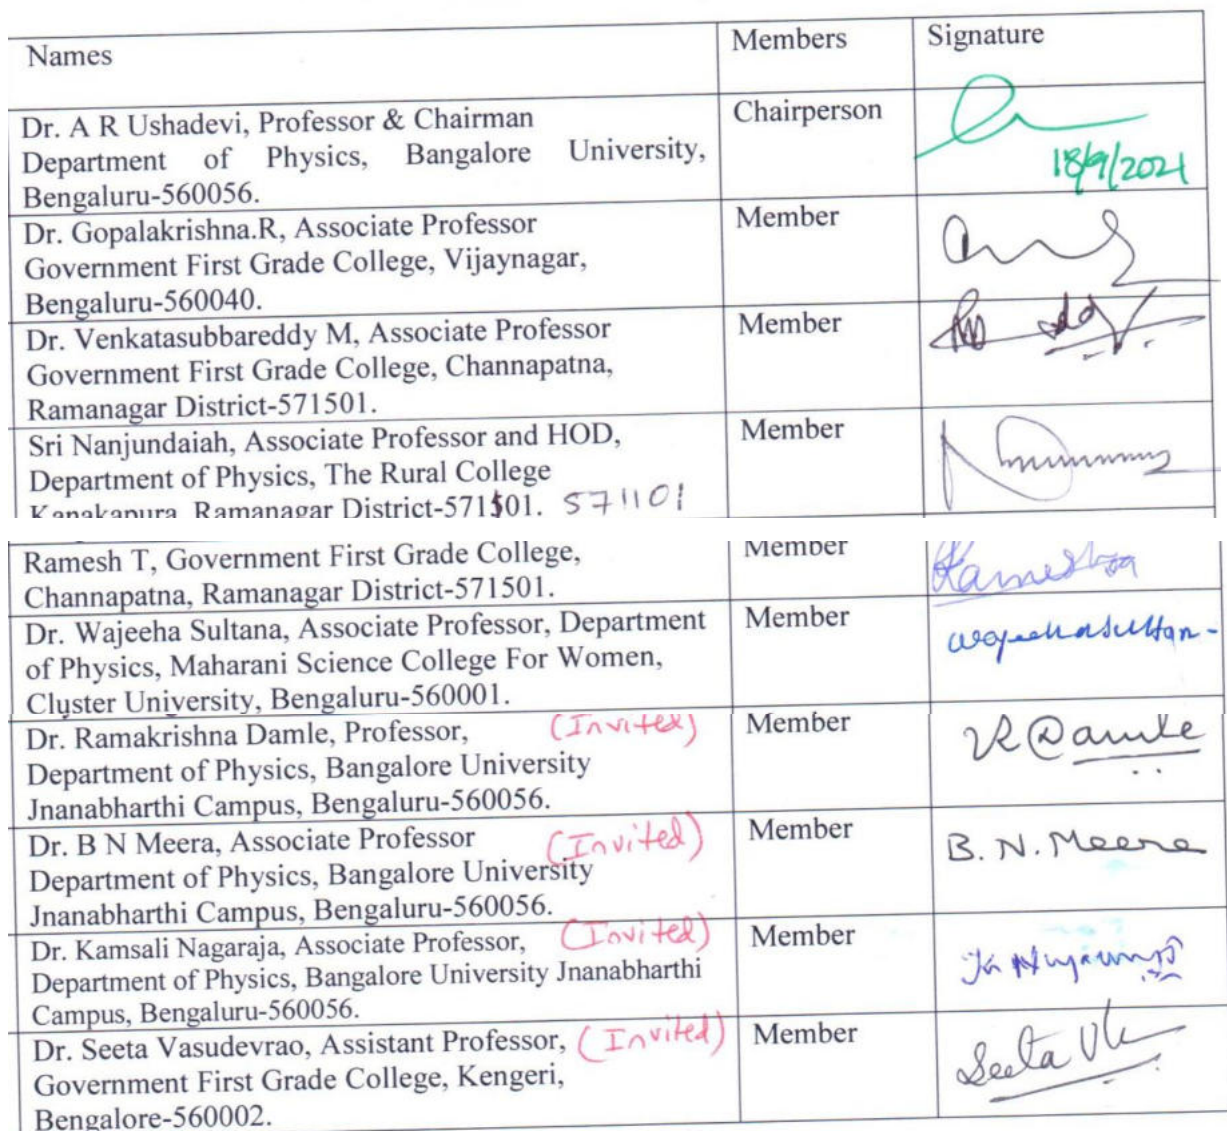 Names Members Signature
Dr. A R Ushadevi, Professor & Chairman Chairperson
Department of Physics, Bangalore University,
Bengaluru-560056. 18/9/2021
Dr. Gopalakrishna.R, Associate Professor Member
Government First Grade College, Vijaynagar,
Bengaluru-560040.
Dr. Venkatasubbareddy M, Associate Professor Member
Government First Grade College, Channapatna,
Ramanagar District-571501.
Sri Nanjundaiah, Associate Professor and HOD, Member
Department of Physics, The Rural College
Kanakapura, Ramanagar District-571501. 571101
Ramesh T, Government First Grade College, Member
Channapatna, Ramanagar District-571501.
Dr. Wajeeha Sultana, Associate Professor, Department Member wajeehasultan
of Physics, Maharani Science College For Women,
Cluster University, Bengaluru-560001.
Dr. Ramakrishna Damle, Professor, (Invited) Member R Damle
Department of Physics, Bangalore University
Jnanabharthi Campus, Bengaluru-560056.
Dr. B N Meera, Associate Professor (Invited) Member B. N. Meera
Department of Physics, Bangalore University
Jnanabharthi Campus, Bengaluru-560056.
Dr. Kamsali Nagaraja, Associate Professor, (Invited) Member
Department of Physics, Bangalore University Jnanabharthi
Campus, Bengaluru-560056.
Dr. Seeta Vasudevrao, Assistant Professor, (Invited) Member Seeta
Government First Grade College, Kengeri,
Bengalore-560002.